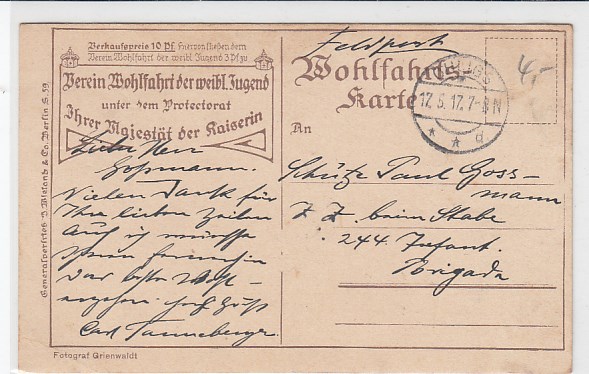 Verkaufspreis 10 Pf. Hiervon fließen dem
Verein Wohlfahrt der weibl. Jugend 3 Pf. zu
Verein Wohlfahrt der weibl. Jugend
unter dem Protectorat
Ihrer Majestät der Kaiserin
Feldpost
Wohlfahrts-
Karte
17.5.17. 7-8 N
* * d
4,-
An
Schütze Paul Goss-
mann
z. Z. beim Stabe
244 Infant.
Brigade
Lieber Herr
Gossmann.
Vielen Dank für
Ihre lieben Zeilen
Auch ich wünsche
Ihnen fernerhin
das beste Wohl-
ergehen
Carl Tanneberger
Generalvertrieb J. Wiesant & Co. Berlin S. 59
Fotograf Grienwaldt